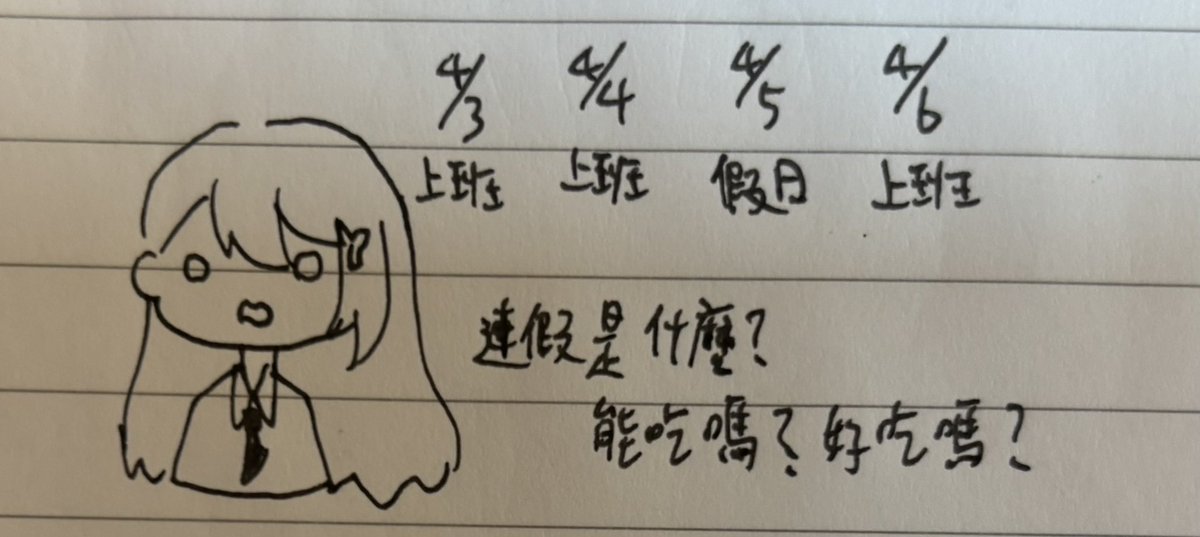 4/3 4/4 4/5 4/6
上班 上班 假日 上班
連假是什麼?
能吃嗎?好吃嗎?